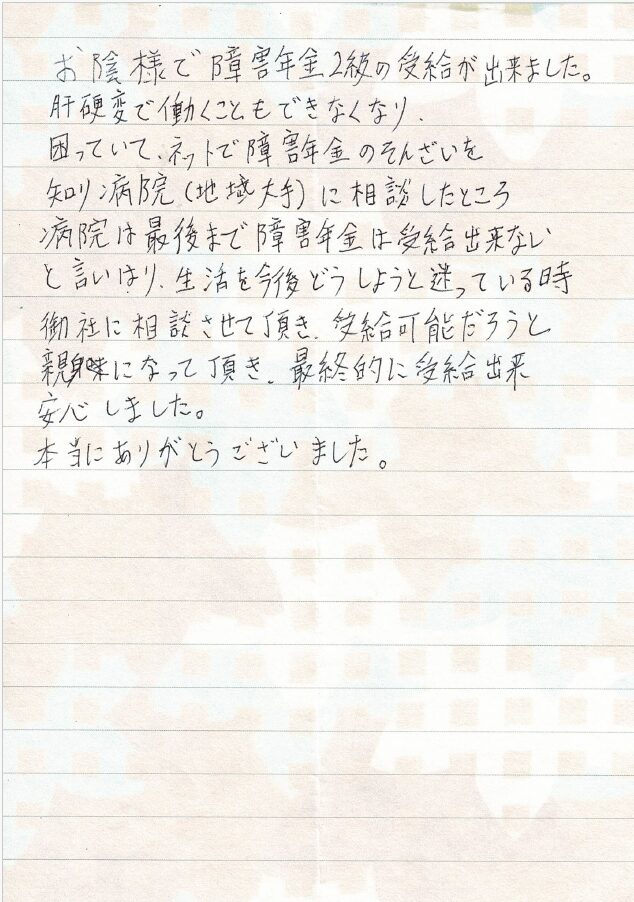 お陰様で障害年金2級の受給が出来ました。
肝硬変で働くこともできなくなり、
困っていて、ネットで障害年金のそんざいを
知り病院(地域大手)に相談したところ
病院は最後まで障害年金は受給出来ない
と言いはり、生活を今後どうしようと迷っている時
御社に相談させて頂き、受給可能だろうと
親身になって頂き、最終的に受給出来
安心しました。
本当にありがとうございました。